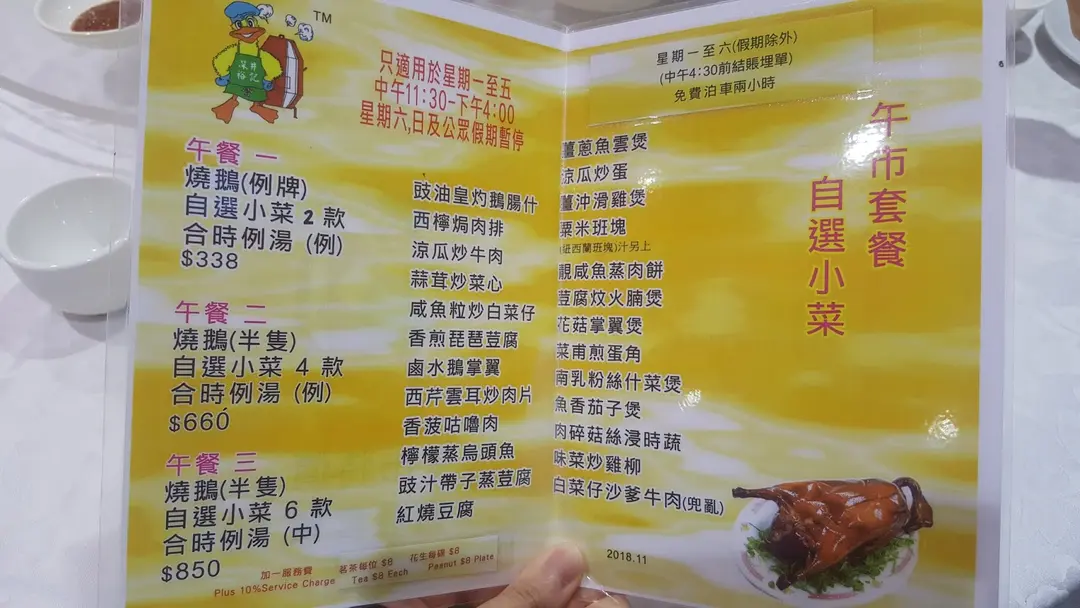 TM
深井
裕記
只適用於星期一至五
中午11:30-下午4:00
星期六,日及公眾假期暫停
午餐 一
燒鵝(例牌)
自選小菜 2 款
合時例湯 (例)
$338
午餐 二
燒鵝(半隻)
自選小菜 4 款
合時例湯 (例)
$660
午餐 三
燒鵝(半隻)
自選小菜 6 款
合時例湯 (中)
$850
豉油皇灼鵝腸什
西檸焗肉排
涼瓜炒牛肉
蒜茸炒菜心
咸魚粒炒白菜仔
香煎琵琶荳腐
鹵水鵝掌翼
西芹雲耳炒肉片
香菠咕嚕肉
檸檬蒸烏頭魚
豉汁帶子蒸荳腐
紅燒豆腐
加一服務費 茗茶每位 $8 花生每碟 $8
Plus 10%Service Charge Tea $8 Each Peanut $8 Plate
星期一至六(假期除外)
(中午4:30前結賬埋單)
免費泊車兩小時
薑蔥魚雲煲
涼瓜炒蛋
薑沖滑雞煲
粟米班塊
(紐西蘭班塊)汁另上
靚咸魚蒸肉餅
荳腐炆火腩煲
花菇掌翼煲
菜甫煎蛋角
南乳粉絲什菜煲
魚香茄子煲
肉碎菇絲浸時蔬
味菜炒雞柳
白菜仔沙爹牛肉(兜亂)
2018.11
午市套餐
自選小菜